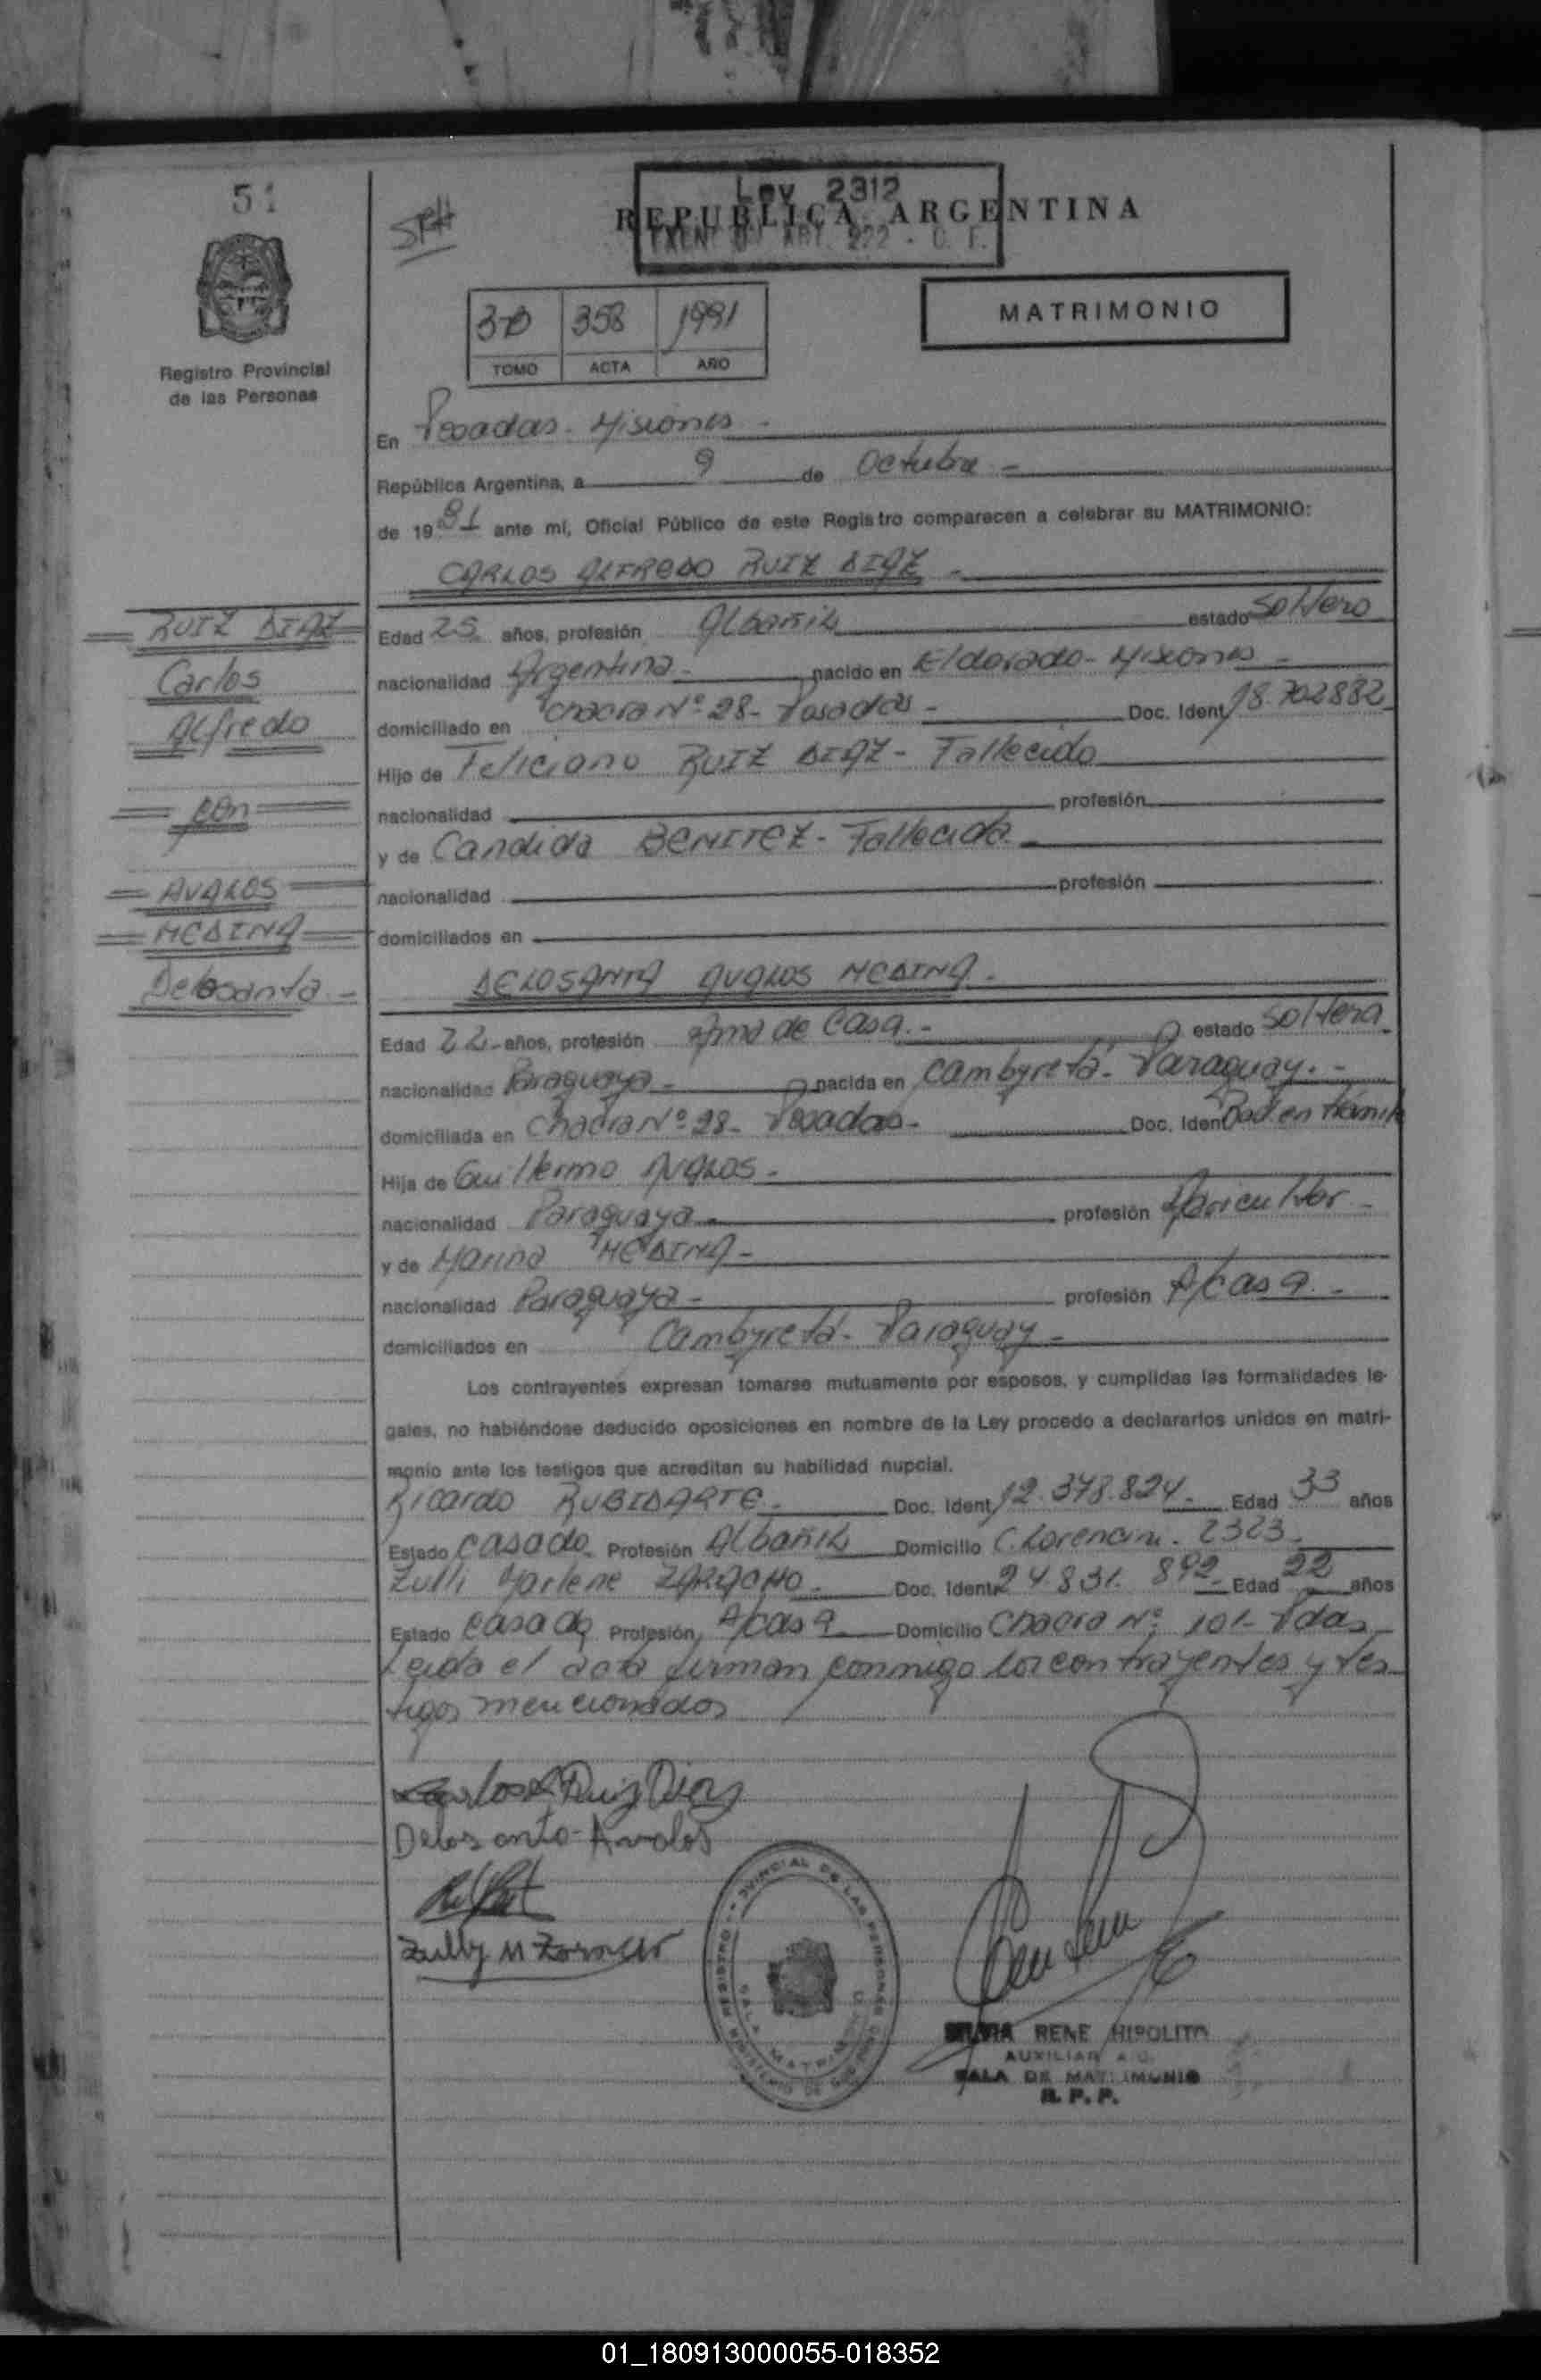 51
SRH
Ley 2312
REPUBLICA ARGENTINA
EXENTO ART. 222 - C. F.
Registro Provincial
de las Personas
3-D 358 1991
TOMO ACTA AÑO
MATRIMONIO
En Posadas - Misiones -
República Argentina, a 9 de Octubre -
de 1991 ante mí, Oficial Público de este Registro comparecen a celebrar su MATRIMONIO:
CARLOS ALFREDO RUIZ DIAZ -
RUIZ DIAZ
Carlos
Alfredo
con
AVALOS
MEDINA
Delosanta -
Edad 25 años, profesión Albañil estado Soltero
nacionalidad Argentina - nacido en Eldorado - Misiones -
domiciliado en Chacra Nº 28 - Posadas - Doc. Ident. 18.702882
Hijo de Feliciano RUIZ DIAZ - Fallecido
nacionalidad profesión
y de Candida BENITEZ - Fallecida -
nacionalidad profesión
domiciliados en
DELOSANTA AVALOS MEDINA -
Edad 22 - años, profesión Ama de Casa. - estado Soltera
nacionalidad Paraguaya - nacida en Cambyretá - Paraguay. -
domiciliada en Chacra Nº 28 - Posadas - Doc. Ident. Rad. en trámite
Hija de Guillermo AVALOS -
nacionalidad Paraguaya - profesión Agricultor -
y de Marina MEDINA -
nacionalidad Paraguaya - profesión A/casa. -
domiciliados en Cambyretá - Paraguay -
Los contrayentes expresan tomarse mutuamente por esposos, y cumplidas las formalidades le-
gales, no habiéndose deducido oposiciones en nombre de la Ley procedo a declararlos unidos en matri-
monio ante los testigos que acreditan su habilidad nupcial.
Ricardo RUBIDARTE - Doc. Ident. 12.378.824 - Edad 33 años
Estado Casado - Profesión Albañil Domicilio C. Lorencini - 2323 -
Zulli Marlene ZARACHO - Doc. Ident. 24.831.892 - Edad 22 años
Estado Casada Profesión A/casa Domicilio Chacra Nº 101 - Pdas -
Leida el acta firman conmigo los contrayentes y tes-
tigos mencionados
Carlos A Ruiz Diaz
Delosanta - Avalos
Zully M Zaracho
REGISTRO PROVINCIAL DE LAS PERSONAS
SALA MATRIMONIO
MINISTERIO DE GOBIERNO
SILVIA RENE HIPOLITO
AUXILIAR
SALA DE MATRIMONIO
R. P. P.
01_180913000055-018352